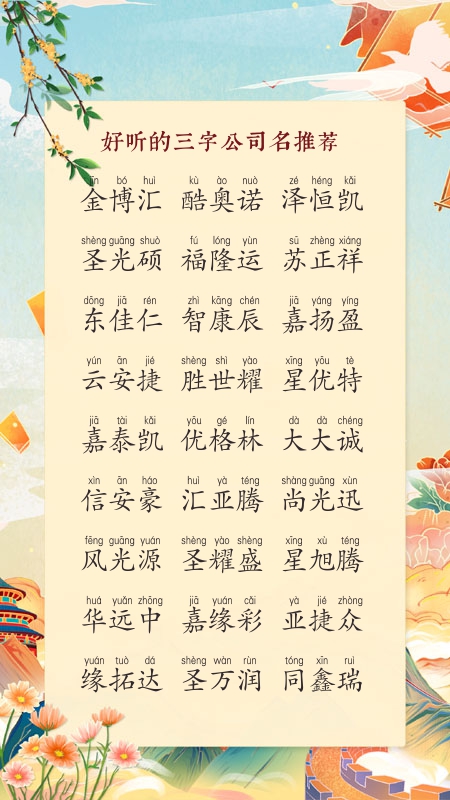 好听的三字公司名推荐
jīn bó huì kù ào nuò zé héng kǎi
金博汇 酷奥诺 泽恒凯
shèng guāng shuò fú lóng yùn sū zhèng xiáng
圣光硕 福隆运 苏正祥
dōng jiā rén zhì kāng chén jiā yáng yíng
东佳仁 智康辰 嘉扬盈
yún ān jié shèng shì yào xīng yōu tè
云安捷 胜世耀 星优特
jiā tài kǎi yōu gé lín dà dà chéng
嘉泰凯 优格林 大大诚
xìn ān háo huì yà téng shàng guāng xùn
信安豪 汇亚腾 尚光迅
fēng guāng yuán shèng yào shèng xīng xù téng
风光源 圣耀盛 星旭腾
huá yuǎn zhōng jiā yuán cǎi yà jié zhòng
华远中 嘉缘彩 亚捷众
yuán tuò dá shèng wàn rùn tóng xīn ruì
缘拓达 圣万润 同鑫瑞